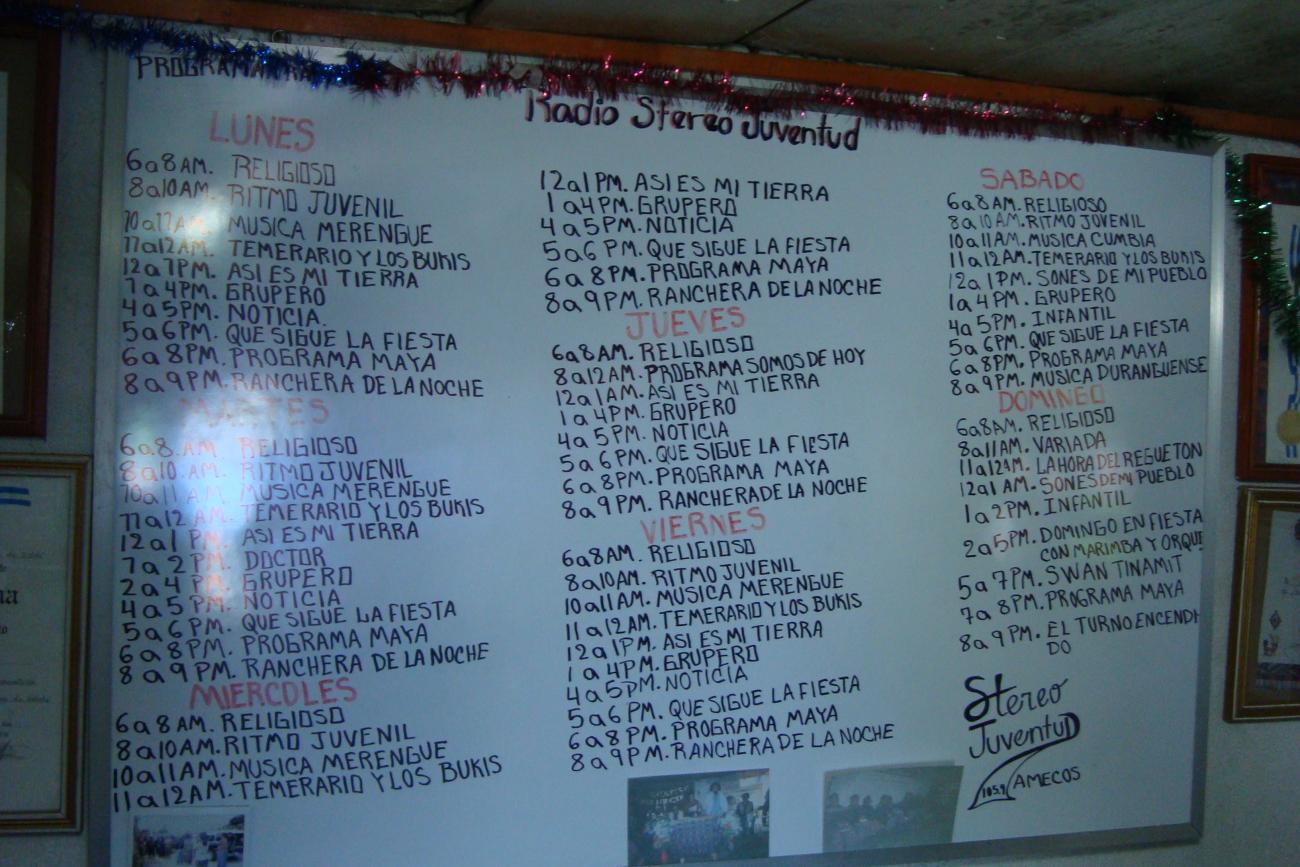 Radio Stereo Juventud
LUNES
6 a 8 AM. RELIGIOSO
8 a 10 AM. RITMO JUVENIL
10 a 11 AM. MUSICA MERENGUE
11 a 12 AM. TEMERARIO Y LOS BUKIS
12 a 1 PM. ASI ES MI TIERRA
1 a 4 PM. GRUPERO
4 a 5 PM. NOTICIA.
5 a 6 PM. QUE SIGUE LA FIESTA
6 a 8 PM. PROGRAMA MAYA
8 a 9 PM. RANCHERA DE LA NOCHE
MARTES
6 a 8. AM. RELIGIOSO
8 a 10. AM. RITMO JUVENIL
10 a 11 AM. MUSICA MERENGUE
11 a 12 AM. TEMERARIO Y LOS BUKIS
12 a 1 PM. ASI ES MI TIERRA
1 a 2 PM. DOCTOR
2 a 4 PM. GRUPERO
4 a 5 PM. NOTICIA
5 a 6 PM. QUE SIGUE LA FIESTA
6 a 8 PM. PROGRAMA MAYA
8 a 9 PM. RANCHERA DE LA NOCHE
MIERCOLES
6 a 8 AM. RELIGIOSO
8 a 10 AM. RITMO JUVENIL
10 a 11 AM. MUSICA MERENGUE
11 a 12 AM. TEMERARIO Y LOS BUKIS
12 a 1 PM. ASI ES MI TIERRA
1 a 4 PM. GRUPERO
4 a 5 PM. NOTICIA
5 a 6 PM. QUE SIGUE LA FIESTA
6 a 8 PM. PROGRAMA MAYA
8 a 9 PM. RANCHERA DE LA NOCHE
JUEVES
6 a 8 AM. RELIGIOSO
8 a 12 AM. PROGRAMA SOMOS DE HOY
12 a 1 AM. ASI ES MI TIERRA
1 a 4 PM. GRUPERO
4 a 5 PM. NOTICIA
5 a 6 PM. QUE SIGUE LA FIESTA
6 a 8 PM. PROGRAMA MAYA
8 a 9 PM. RANCHERA DE LA NOCHE
VIERNES
6 a 8 AM. RELIGIOSO
8 a 10 AM. RITMO JUVENIL
10 a 11 AM. MUSICA MERENGUE
11 a 12 AM. TEMERARIO Y LOS BUKIS
12 a 1 PM. ASI ES MI TIERRA
1 a 4 PM. GRUPERO
4 a 5 PM. NOTICIA
5 a 6 PM. QUE SIGUE LA FIESTA
6 a 8 PM. PROGRAMA MAYA
8 a 9 PM. RANCHERA DE LA NOCHE
SABADO
6 a 8 AM. RELIGIOSO
8 a 10 AM. RITMO JOVENIL
10 a 11 AM. MUSICA CUMBIA
11 a 12 AM. TEMERARIO Y LOS BUKIS
12 a 1 PM. SONES DE MI PUEBLO
1 a 4 PM. GRUPERO
4 a 5 PM. INFANTIL
5 a 6 PM. QUE SIGUE LA FIESTA
6 a 8 PM. PROGRAMA MAYA
8 a 9 PM. MUSICA DURANGUENSE
DOMINGO
6 a 8 AM. RELIGIOSO
8 a 11 AM. VARIADA
11 a 12 AM. LA HORA DEL REGUETON
12 a 1 AM. SONES DE MI PUEBLO
1 a 2 PM. INFANTIL
2 a 5 PM. DOMINGO EN FIESTA
CON MARIMBA Y ORQUE
5 a 7 PM. SWAN TINAMIT
7 a 8 PM. PROGRAMA MAYA
8 a 9 PM. EL TURNO ENCENDI
DO
Stereo
Juventud
105.9 AMECOS